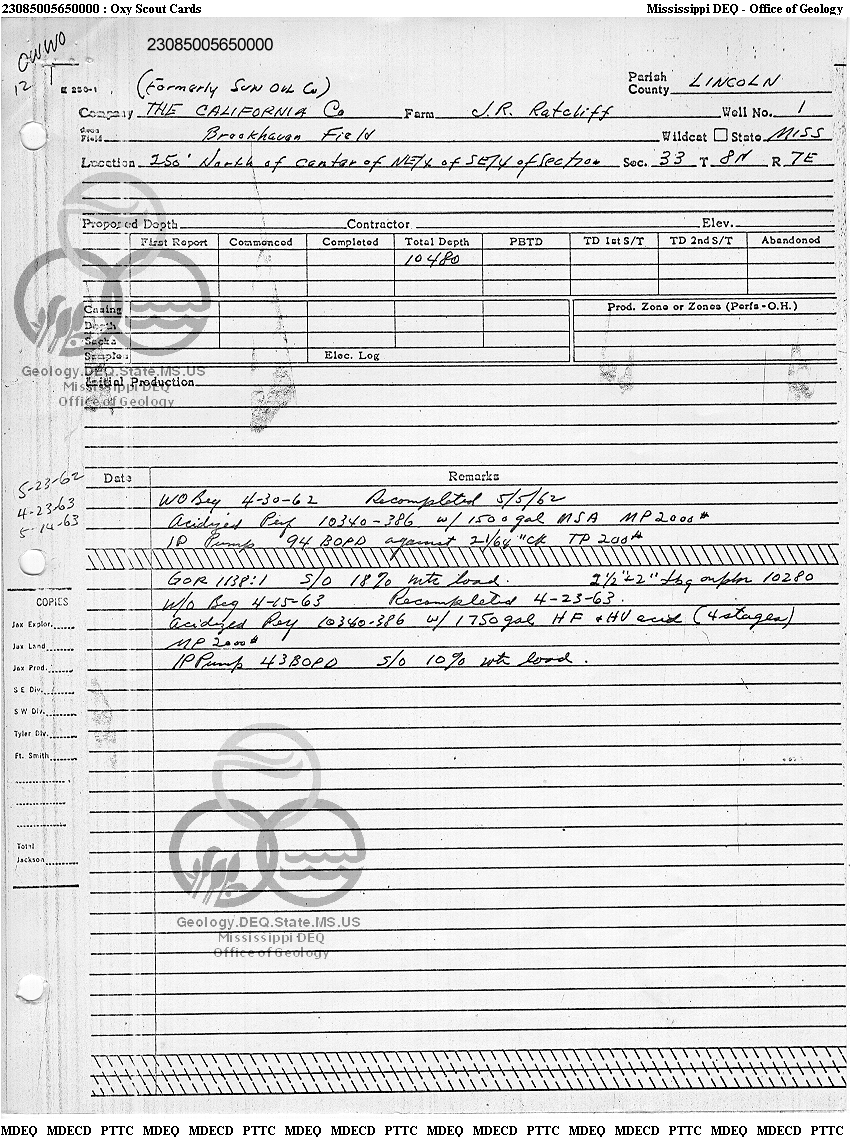 23085005650000 : Oxy Scout Cards Mississippi DEQ - Office of Geology
OWWO 23085005650000
12
E 250-1 (Formerly SUN OIL Co) Parish County LINCOLN
Company THE CALIFORNIA Co Farm J.R. Ratcliff Well No. 1
Field Brookhaven Field Wildcat State MISS
Location 250' North of center of NE/4 of SE/4 of Section Sec. 33 T 8N R 7E
Proposed Depth Contractor Elev.
First Report Commenced Completed Total Depth PBTD TD 1st S/T TD 2nd S/T Abandoned
10480
Casing Prod. Zone or Zones (Perfs-O.H.)
Depth
Sacks
Samples Elec. Log
Geology.DEQ.State.MS.US
Mississippi DEQ
Office of Geology
Initial Production
Date Remarks
5-23-62
4-23-63
5-14-63
WO Beg 4-30-62 Recompleted 5/5/62
Acidized Perf 10340-386 w/ 1500 gal MSA MP 2000#
IP Pump 94 BOPD against 21/64" ck TP 200#
GOR 1138:1 S/O 18% wtr load. 2 1/2"-2" tbg 10280
W/o Beg 4-15-63 Recompleted 4-23-63.
Acidized Perf 10340-386 w/ 1750 gal HF + HV acid (4 stages)
MP 2000#
IP Pump 43 BOPD S/O 10% wtr load.
COPIES
Jax Explor.
Jax Land
Jax Prod.
S E Div.
S W Div.
Tyler Div.
Ft. Smith
Total
Jackson
Geology.DEQ.State.MS.US
Mississippi DEQ
Office of Geology
MDEQ MDECD PTTC MDEQ MDECD PTTC MDEQ MDECD PTTC MDEQ MDECD PTTC MDEQ MDECD PTTC